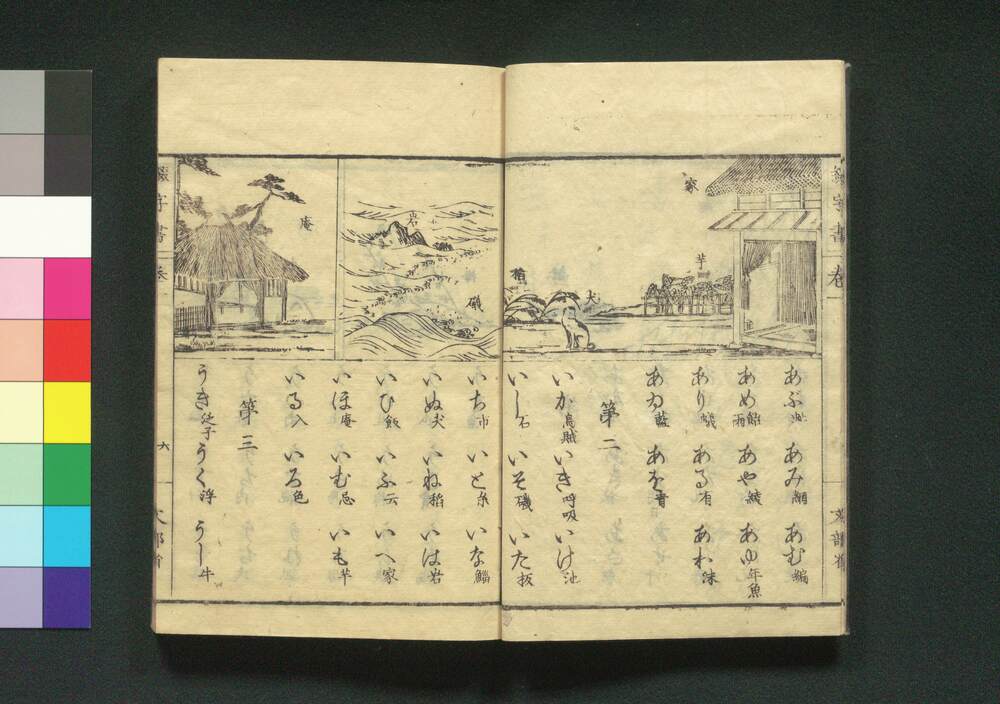 家
芋
犬
稲
あぶ 虻 あみ 網 あむ 編
あめ 飴 雨 あや 綾 あゆ 年魚
あり 蟻 ある 有 あわ 沫
あゐ 藍 あを 青
第二
いか 烏賊 いき 呼吸 いけ 池
いし 石 いそ 磯 いた 板
岩
磯
庵
いち 市 いと 糸 いな 鯔
いぬ 犬 いね 稲 いは 岩
いひ 飯 いふ 云 いへ 家
いほ 庵 いむ 忌 いも 芋
いる 入 いろ 色
第三
うき うく 浮 うし 牛
六
文部省